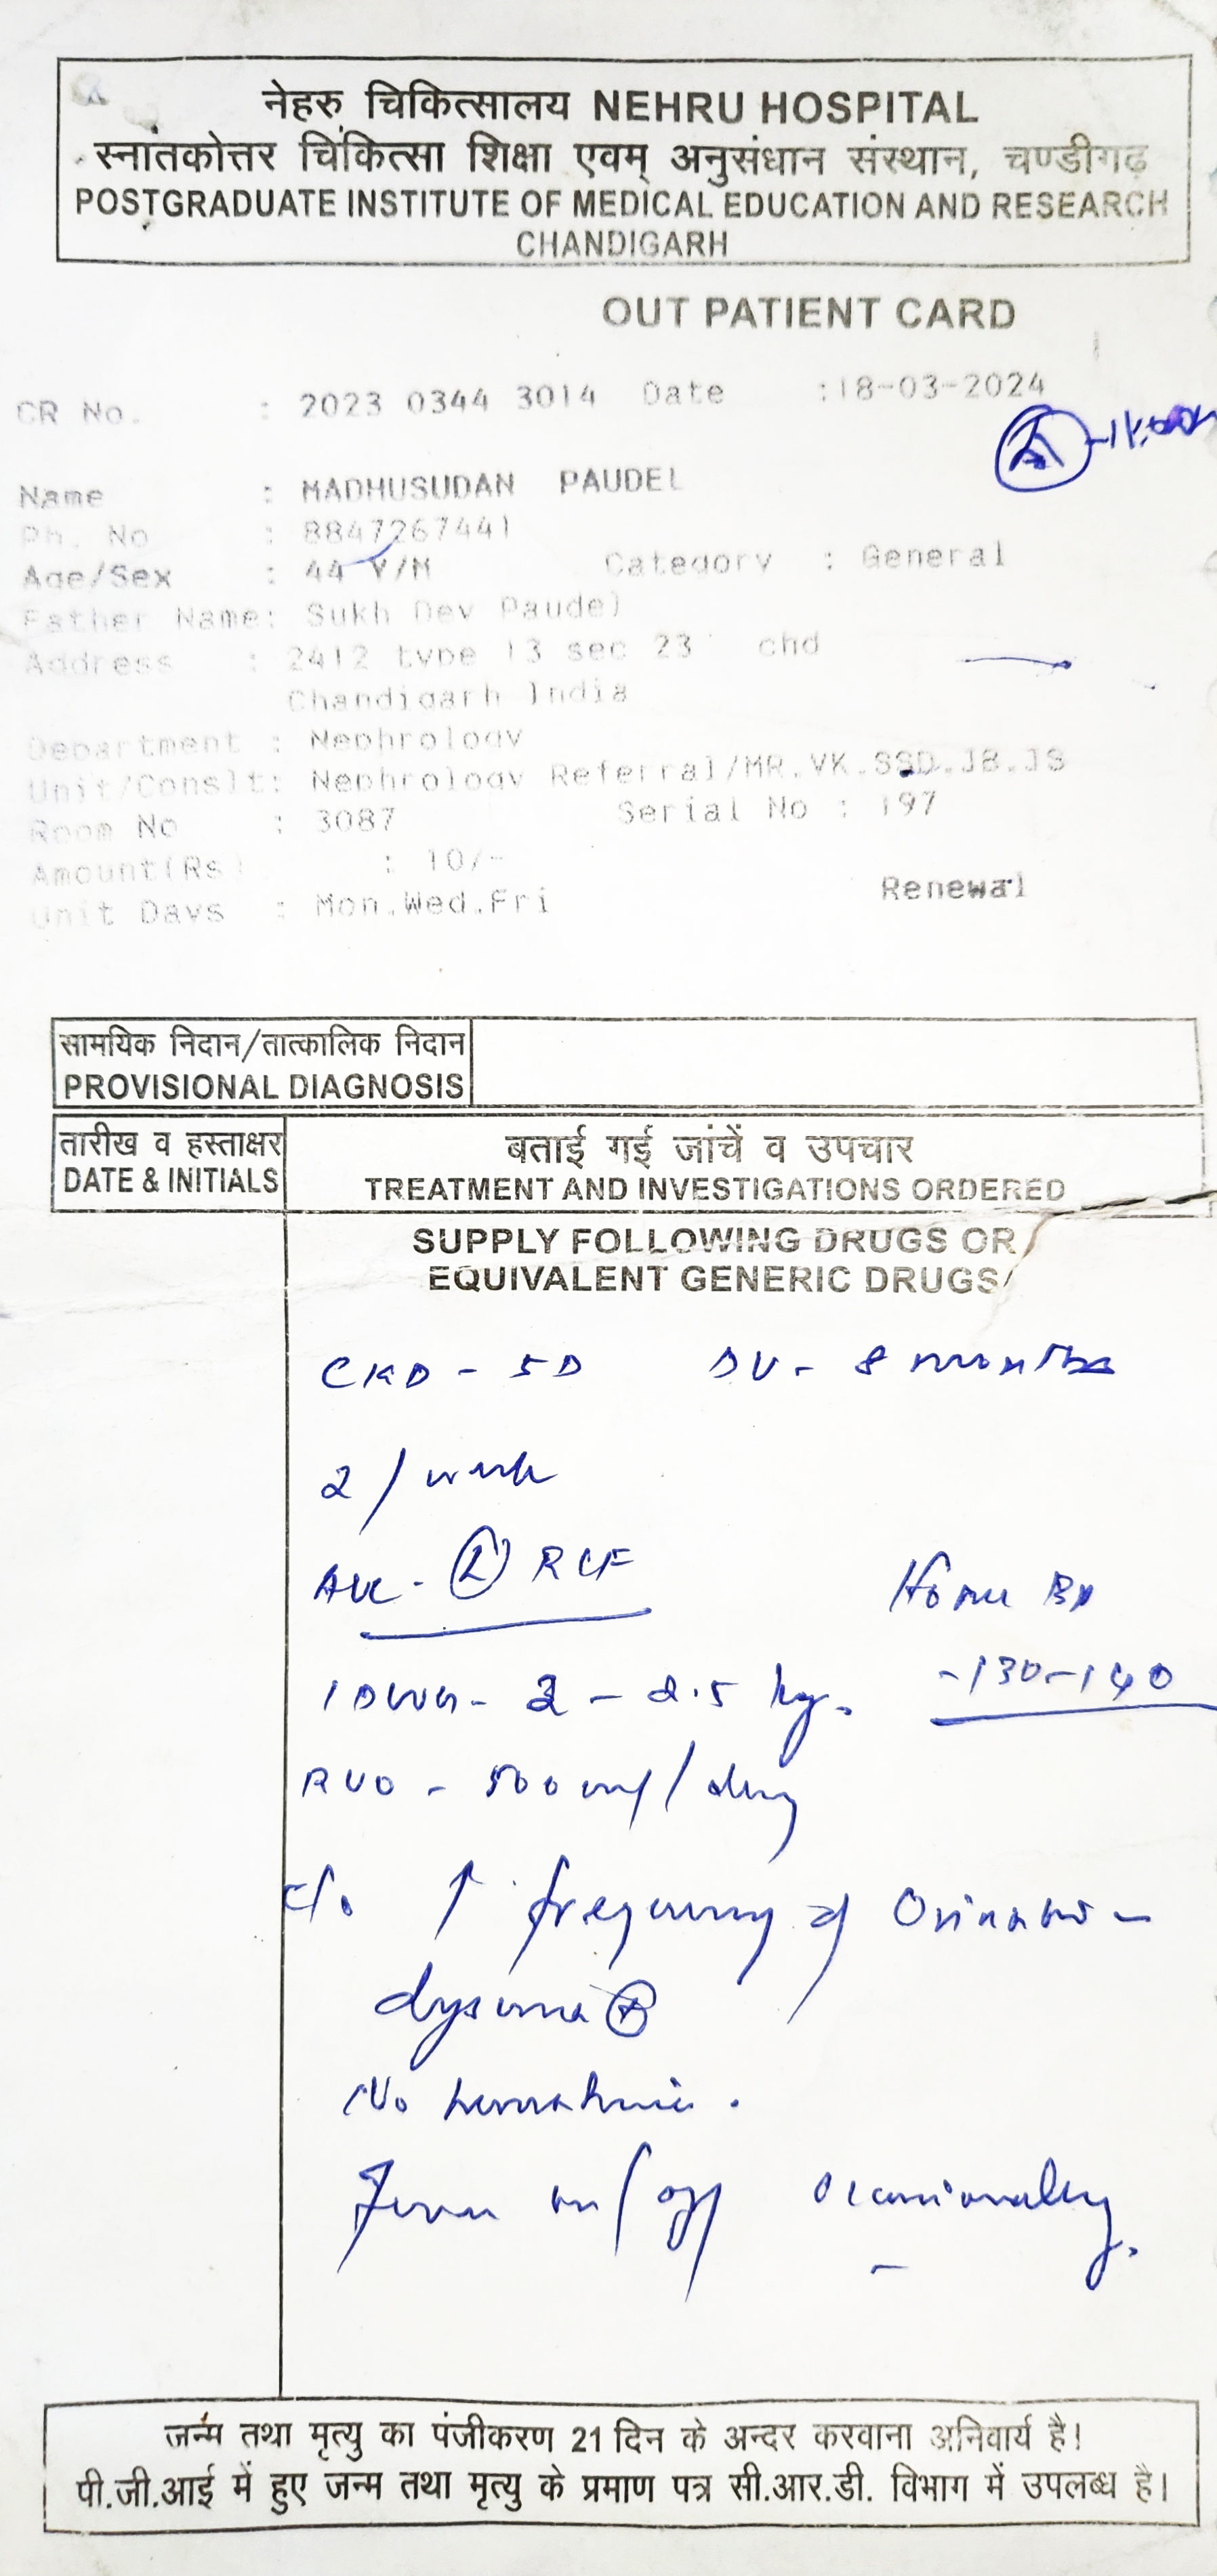 नेहरु चिकित्सालय NEHRU HOSPITAL
स्नातकोत्तर चिकित्सा शिक्षा एवम् अनुसंधान संस्थान, चण्डीगढ़
POSTGRADUATE INSTITUTE OF MEDICAL EDUCATION AND RESEARCH
CHANDIGARH
OUT PATIENT CARD
CR No. : 2023 0344 3014 Date :18-03-2024
Name : MADHUSUDAN PAUDEL
Ph. No : 8847267441
Age/Sex : 44 Y/M Category : General
Father Name: Sukh Dev Paudel
Address : 2412 type 13 sec 23 chd
Chandigarh India
Department : Nephrology
Unit/Conslt: Nephrology Referral/MR.VK.SSD.JB.JS
Room No : 3087 Serial No : 197
Amount(Rs) : 10/-
Renewal
Unit Days : Mon.Wed.Fri
सामयिक निदान/तात्कालिक निदान
PROVISIONAL DIAGNOSIS
तारीख व हस्ताक्षर
DATE & INITIALS
बताई गई जांचें व उपचार
TREATMENT AND INVESTIGATIONS ORDERED
SUPPLY FOLLOWING DRUGS OR
EQUIVALENT GENERIC DRUGS
CKD - 5D DV - 8 months
2 / week
(L) RCF
Home BP
- 130-140
2 - 2.5 kg.
RUO - 500 ml / day
c/o ↑ frequency of Urination
dysuria (+)
No hematuria.
Fever on/off occasionally.
जन्म तथा मृत्यु का पंजीकरण 21 दिन के अन्दर करवाना अनिवार्य है।
पी.जी.आई में हुए जन्म तथा मृत्यु के प्रमाण पत्र सी.आर.डी. विभाग में उपलब्ध है।